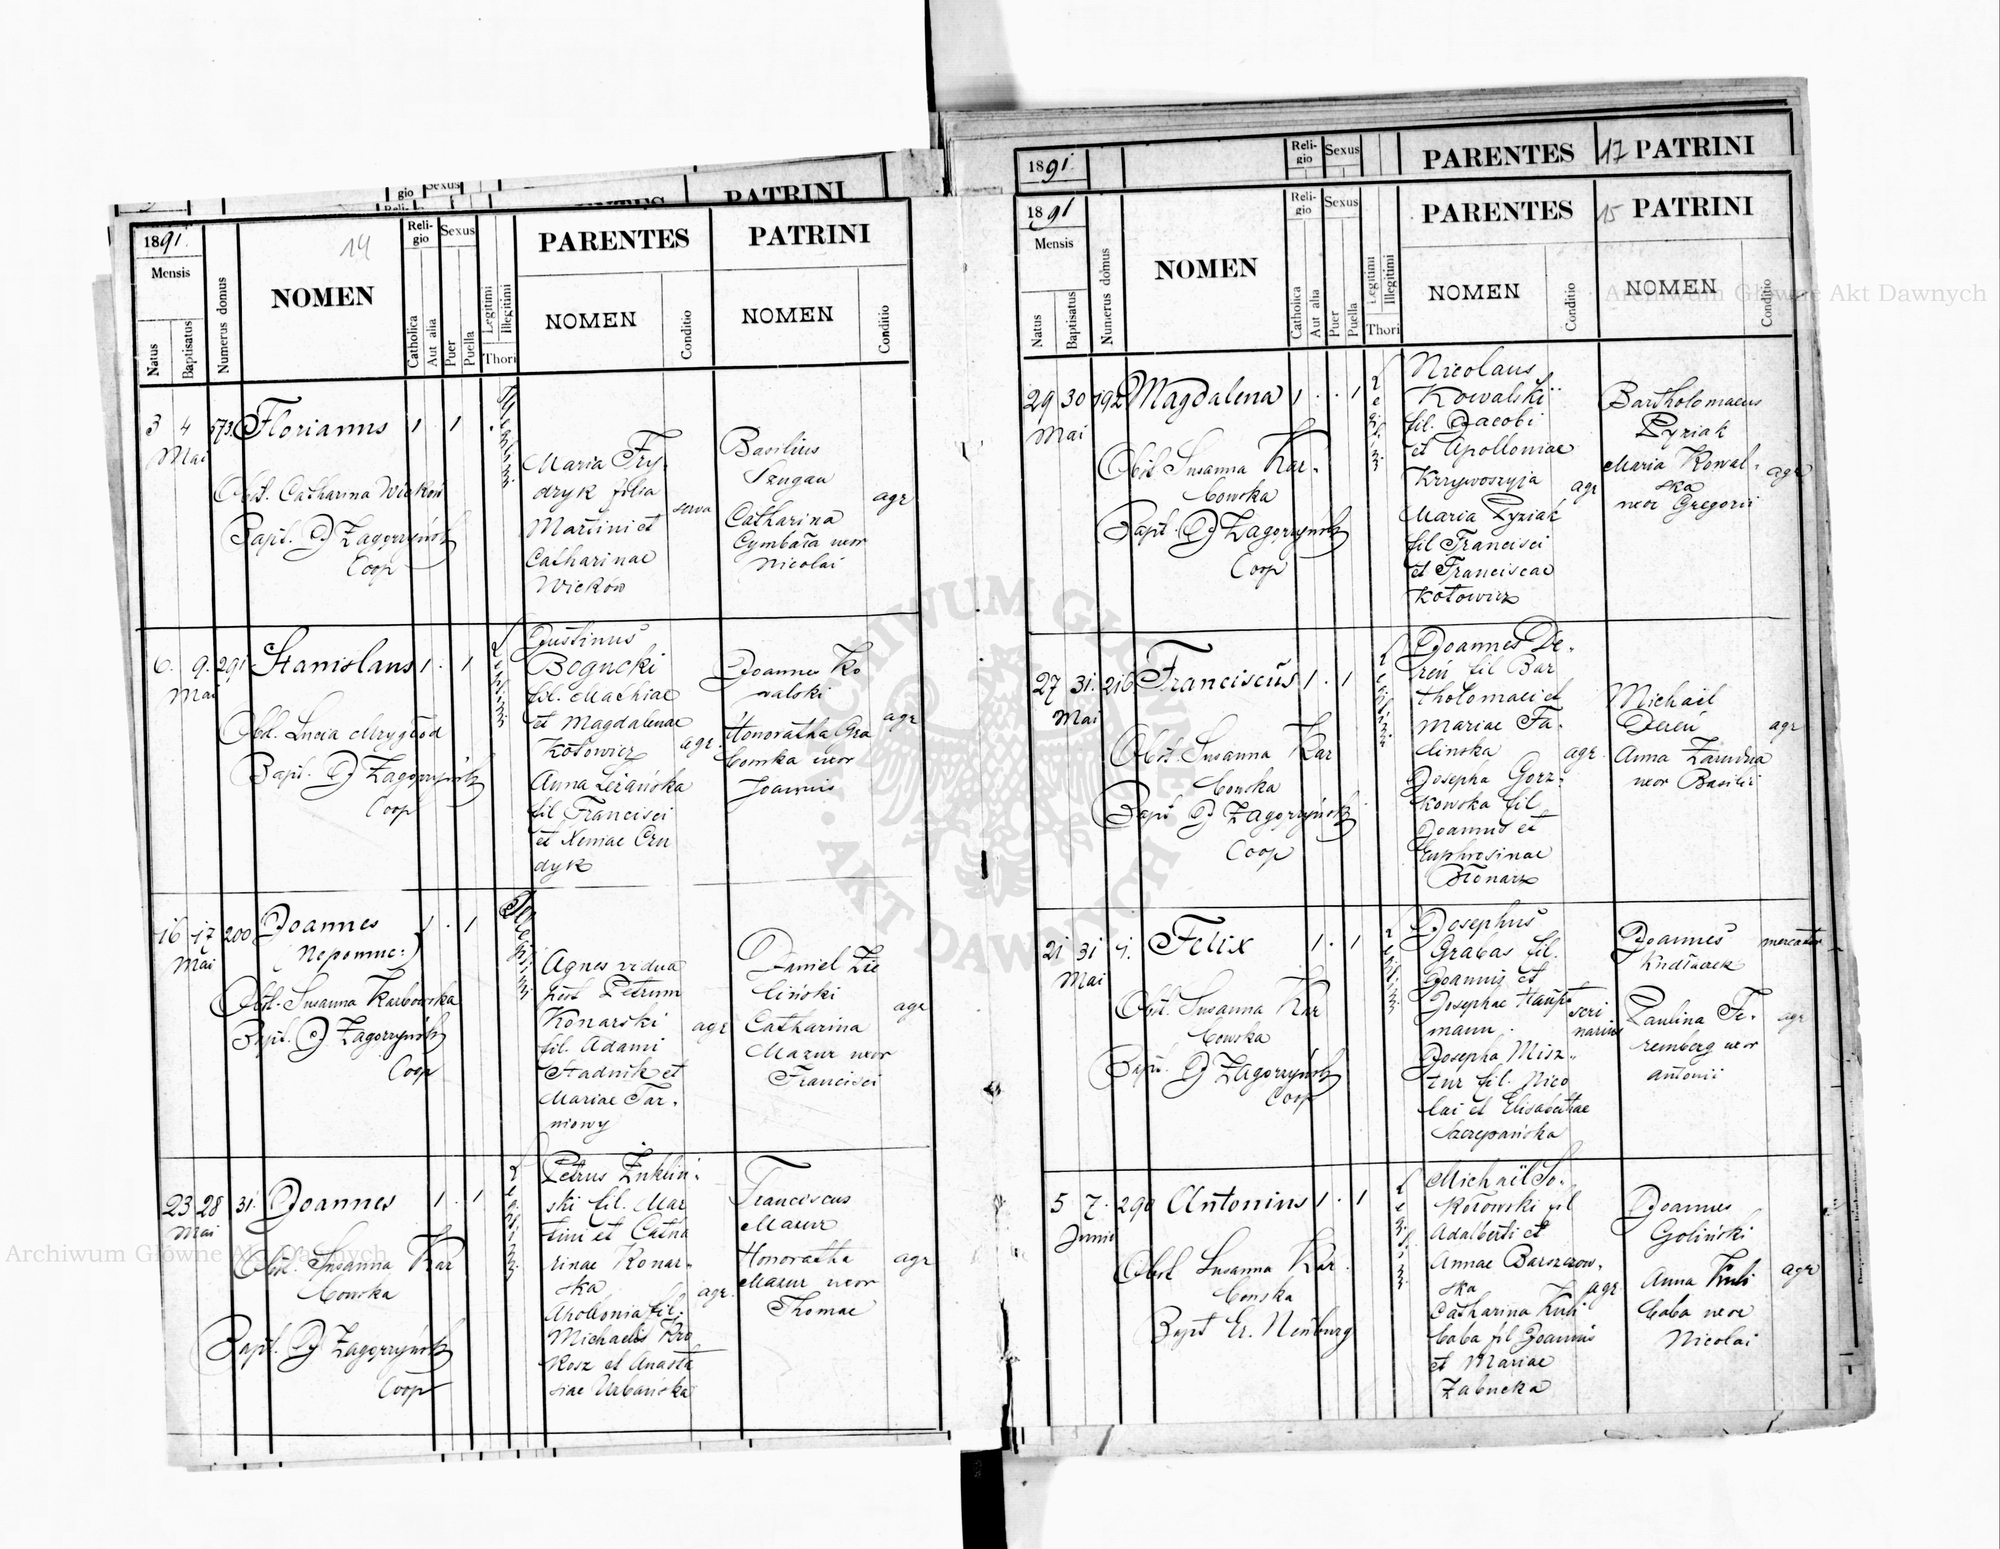 gio
Sexus
Reli-
PARENTES
PATRINI
1891.
14
Mensis
Natus
Baptisatus
Numerus domus
NOMEN
Reli-
gio
Catholica
Aut alia
Sexus
Puer
Puella
Legitimi
Illegitimi
Thori
PARENTES
NOMEN
Conditio
PATRINI
NOMEN
Conditio
3 4 573. Florianus 1 1
Mai
Obst. Catharina Wieków
Bapt. J Zagórzyński
Coop
Illegitimi
Maria Fry-
dryk filia
Martini et
Catharinae
Wieków
serva
Basilius
Szugan
Catharina
Cymbała uxor
Nicolai
agr
6. 9. 291 Stanislaus 1. 1
Mai
Obst. Lucia Mrygłod
Bapt. J Zagórzyński
Coop
Legitimi
Justinus
Bogucki
fil. Mathiae
et Magdalenae
Kotowicz
Anna Leżańska
fil Francisci
et Xeniae Oru
dyk
agr.
Joannes Ko
walski
Honoratha Gra
bowska uxor
Joannis
agr
16 17 200 Joannes 1. 1
Mai
(Nepomuc:)
Obst. Susanna Karbowska
Bapt. J Zagórzyński
Coop
Illegitimi
Agnes vidua
post Petrum
Konarski
fil. Adami
Stadnik et
Mariae Tar-
niowy
agr
Daniel Zie
liński
Catharina
Mazur uxor
Francisci
agr
23 28 31. Joannes 1. 1
Mai
Obst. Susanna Kar
bowska
Bapt. J Zagórzyński
Coop
Legitimi
Petrus Inkliń-
ski fil. Mar
tini et Catha
rinae Konar-
ska
Apollonia fil.
Michaelis Kro
kosz et Anasta
siae Urbańska
agr.
Franciscus
Mazur
Honoratha
Mazur uxor
Thomae
agr
1891.
Reli-
gio
Sexus
PARENTES
17 PATRINI
1891
Mensis
Natus
Baptisatus
Numerus domus
NOMEN
Reli-
gio
Catholica
Aut alia
Sexus
Puer
Puella
Legitimi
Illegitimi
Thori
PARENTES
NOMEN
Conditio
15 PATRINI
NOMEN
Conditio
29 30 192 Magdalena 1. . 1
Mai
Obst Susanna Kar-
bowska
Bapt. J Zagórzyński
Coop
Legitimi
Nicolaus
Kowalski
fil. Jacobi
et Apolloniae
Krzywoszyja
Maria Pyziak
fil Francisci
et Franciscae
Kotowicz
agr
Bartholomaeus
Pyziak
Maria Kowal-
ska
uxor Gregorii
agr
27 31. 216 Franciscus 1. 1
Mai
Obst. Susanna Kar
bowska
Bapt J Zagórzyński
Coop
Legitimi
Joannes De-
reń fil Bar
tholomaei et
Mariae Ta-
lińska
Josepha Gorz-
kowska fil
Joannis et
Euphrosinae
Bednarz
agr.
Michaił
Dereń
Anna Zarudna
uxor Basilii
agr
21 31 1. Felix 1. 1
Mai
Obst. Susanna Kar
bowska
Bapt. J Zagórzyński
Coop
Legitimi
Josephus
Grabas fil.
Joannis et
Josephae Haupt
mann.
Josepha Misz-
tur fil. Nico
lai et Elisabethae
Szczepańska
Joannes
Kudłaczek
Paulina Fe-
remberg uxor
Antonii
mercator
agr
5 7. 290 Antonius 1. 1
Junii
Obst Susanna Kar-
bowska
Bapt Er. Neuburg
Legitimi
Michaił So-
kołowski fil
Adalberti et
Annae Barszczow-
ska
Catharina Kuli
baba fil Joannis
et Mariae
Zabucka
agr
Joannes
Goliński
Anna Kuli
baba uxor
Nicolai
agr
Archiwum Główne Akt Dawnych
Archiwum Główne Akt Dawnych
ARCHIWUM GŁÓWNE
AKT DAWNYCH